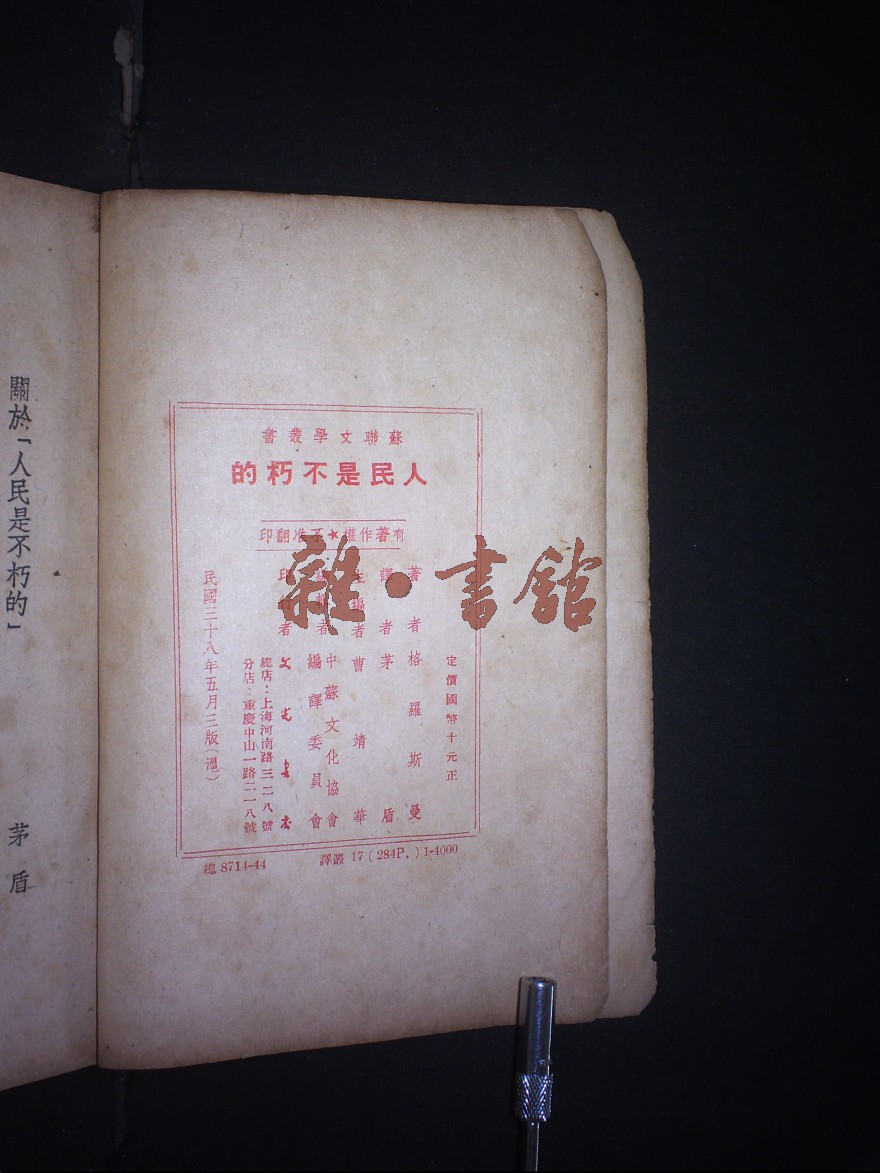 蘇聯文學叢書
人民是不朽的
有著作權★不准翻印
定價國幣十元正
著者 格羅斯曼
譯者 茅盾
主編者 曹靖華
中蘇文化協會
編譯委員會
印 者 文光書店
總店：上海河南路三二八號
分店：重慶中山一路二一八號
民國三十八年五月三版（滬）
總 8714-44 譯叢 17 (284P.) 1-4000
關於「人民是不朽的」 茅盾
雜·書館